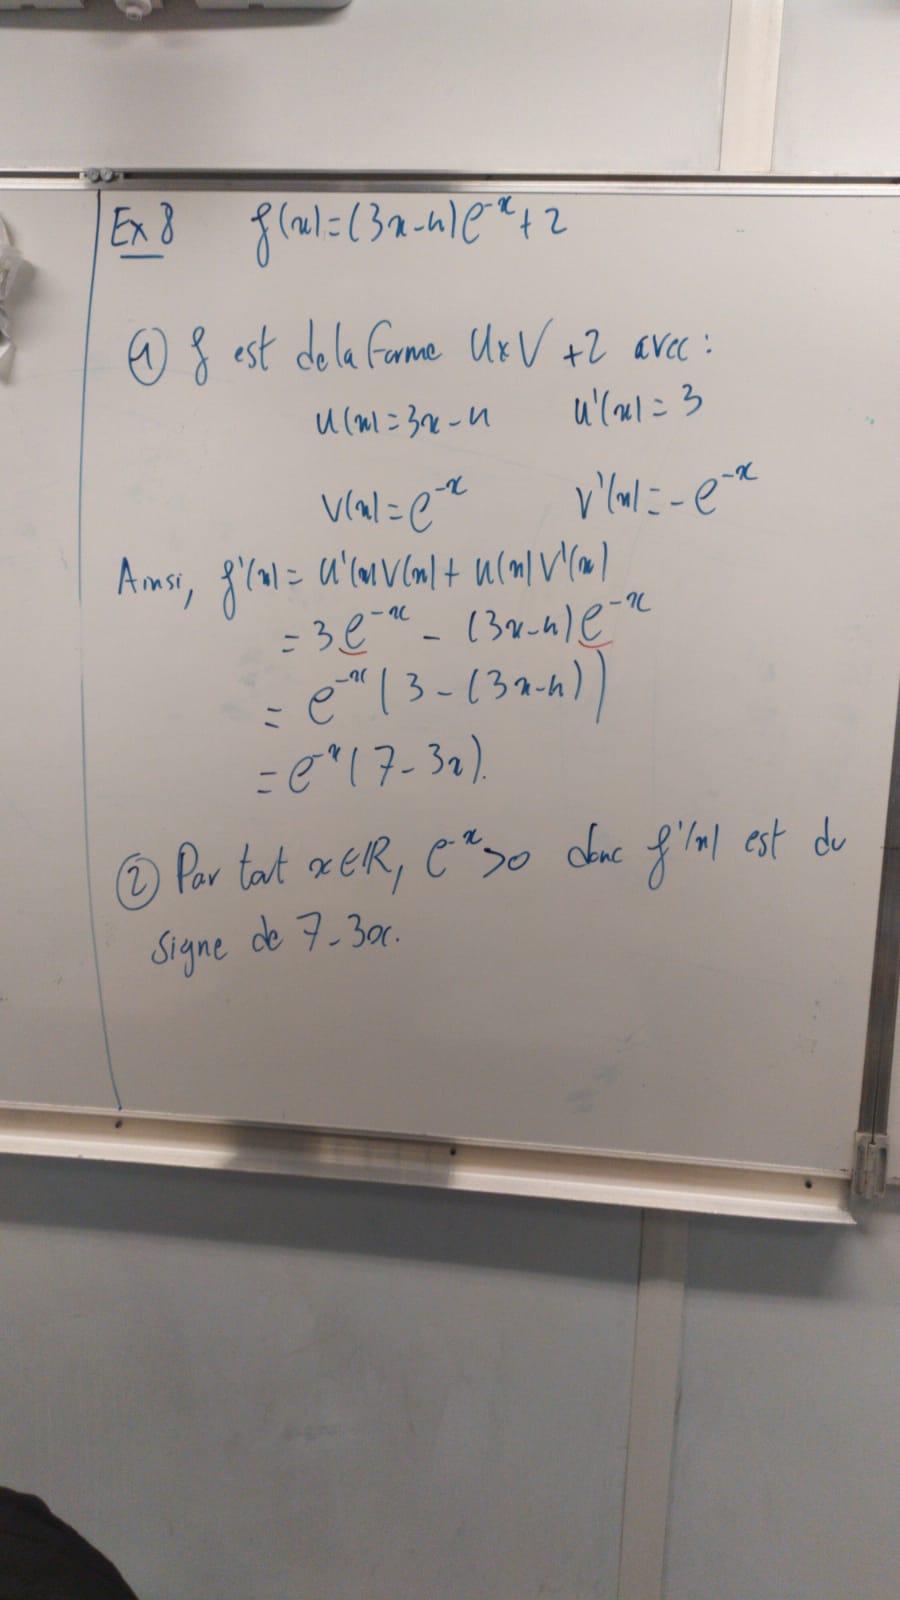 Ex 8 f(x)=(3x-4)e^{-x}+2
① f est de la forme U×V +2 avec :
u(x)=3x-4 u'(x)=3
v(x)=e^{-x} v'(x)=-e^{-x}
Ainsi, f'(x)= u'(x)v(x)+u(x)v'(x)
=3e^{-x} - (3x-4)e^{-x}
= e^{-x}(3-(3x-4))
=e^{-x}(7-3x).
② Par tout x∈ℝ, e^{-x}>0 donc f'(x) est du
signe de 7-3x.